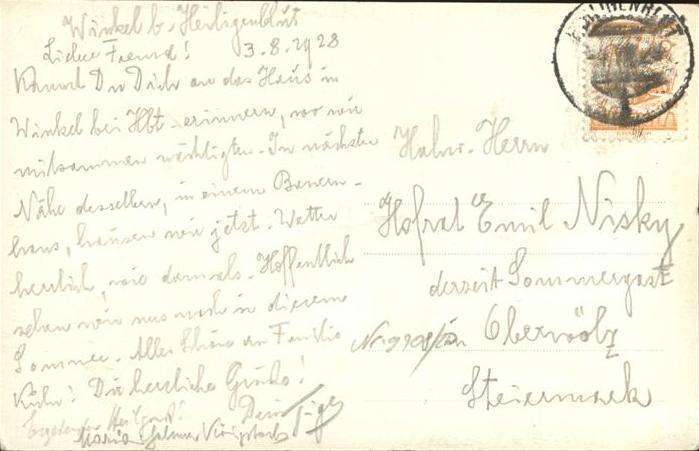 Winkel b. Heiligenblut
3.8.1928
Lieber Freund!
Kannst Du Dich an das Haus in
Winkel bei Hbt. erinnern, wo wir
mitsammen nächtigten. In nächster
Nähe desselben, in einem Bauern-
haus, hausen wir jetzt. Wetter
herrlich, wie damals. Hoffentlich
sehen wir uns noch in diesem
Sommer. Alles Schöne an Familie
Dir herzliche Grüße!
Dein
Maria
Herrn
Hofrat Emil Nisky
derzeit Sommergast
Oberwölz
Steiermark